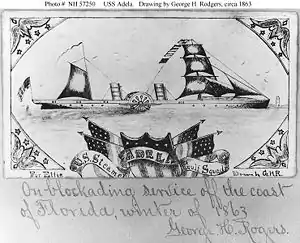 Photo # NH 57250 USS Adela. Drawing by George H. Rodgers, circa 1863
U.S. Steamer ADELA Gulf Squad.
For Ellie Drawn by G.H.R.
On blockading service off the coast
of Florida, winter of 1863
George H. Rogers.